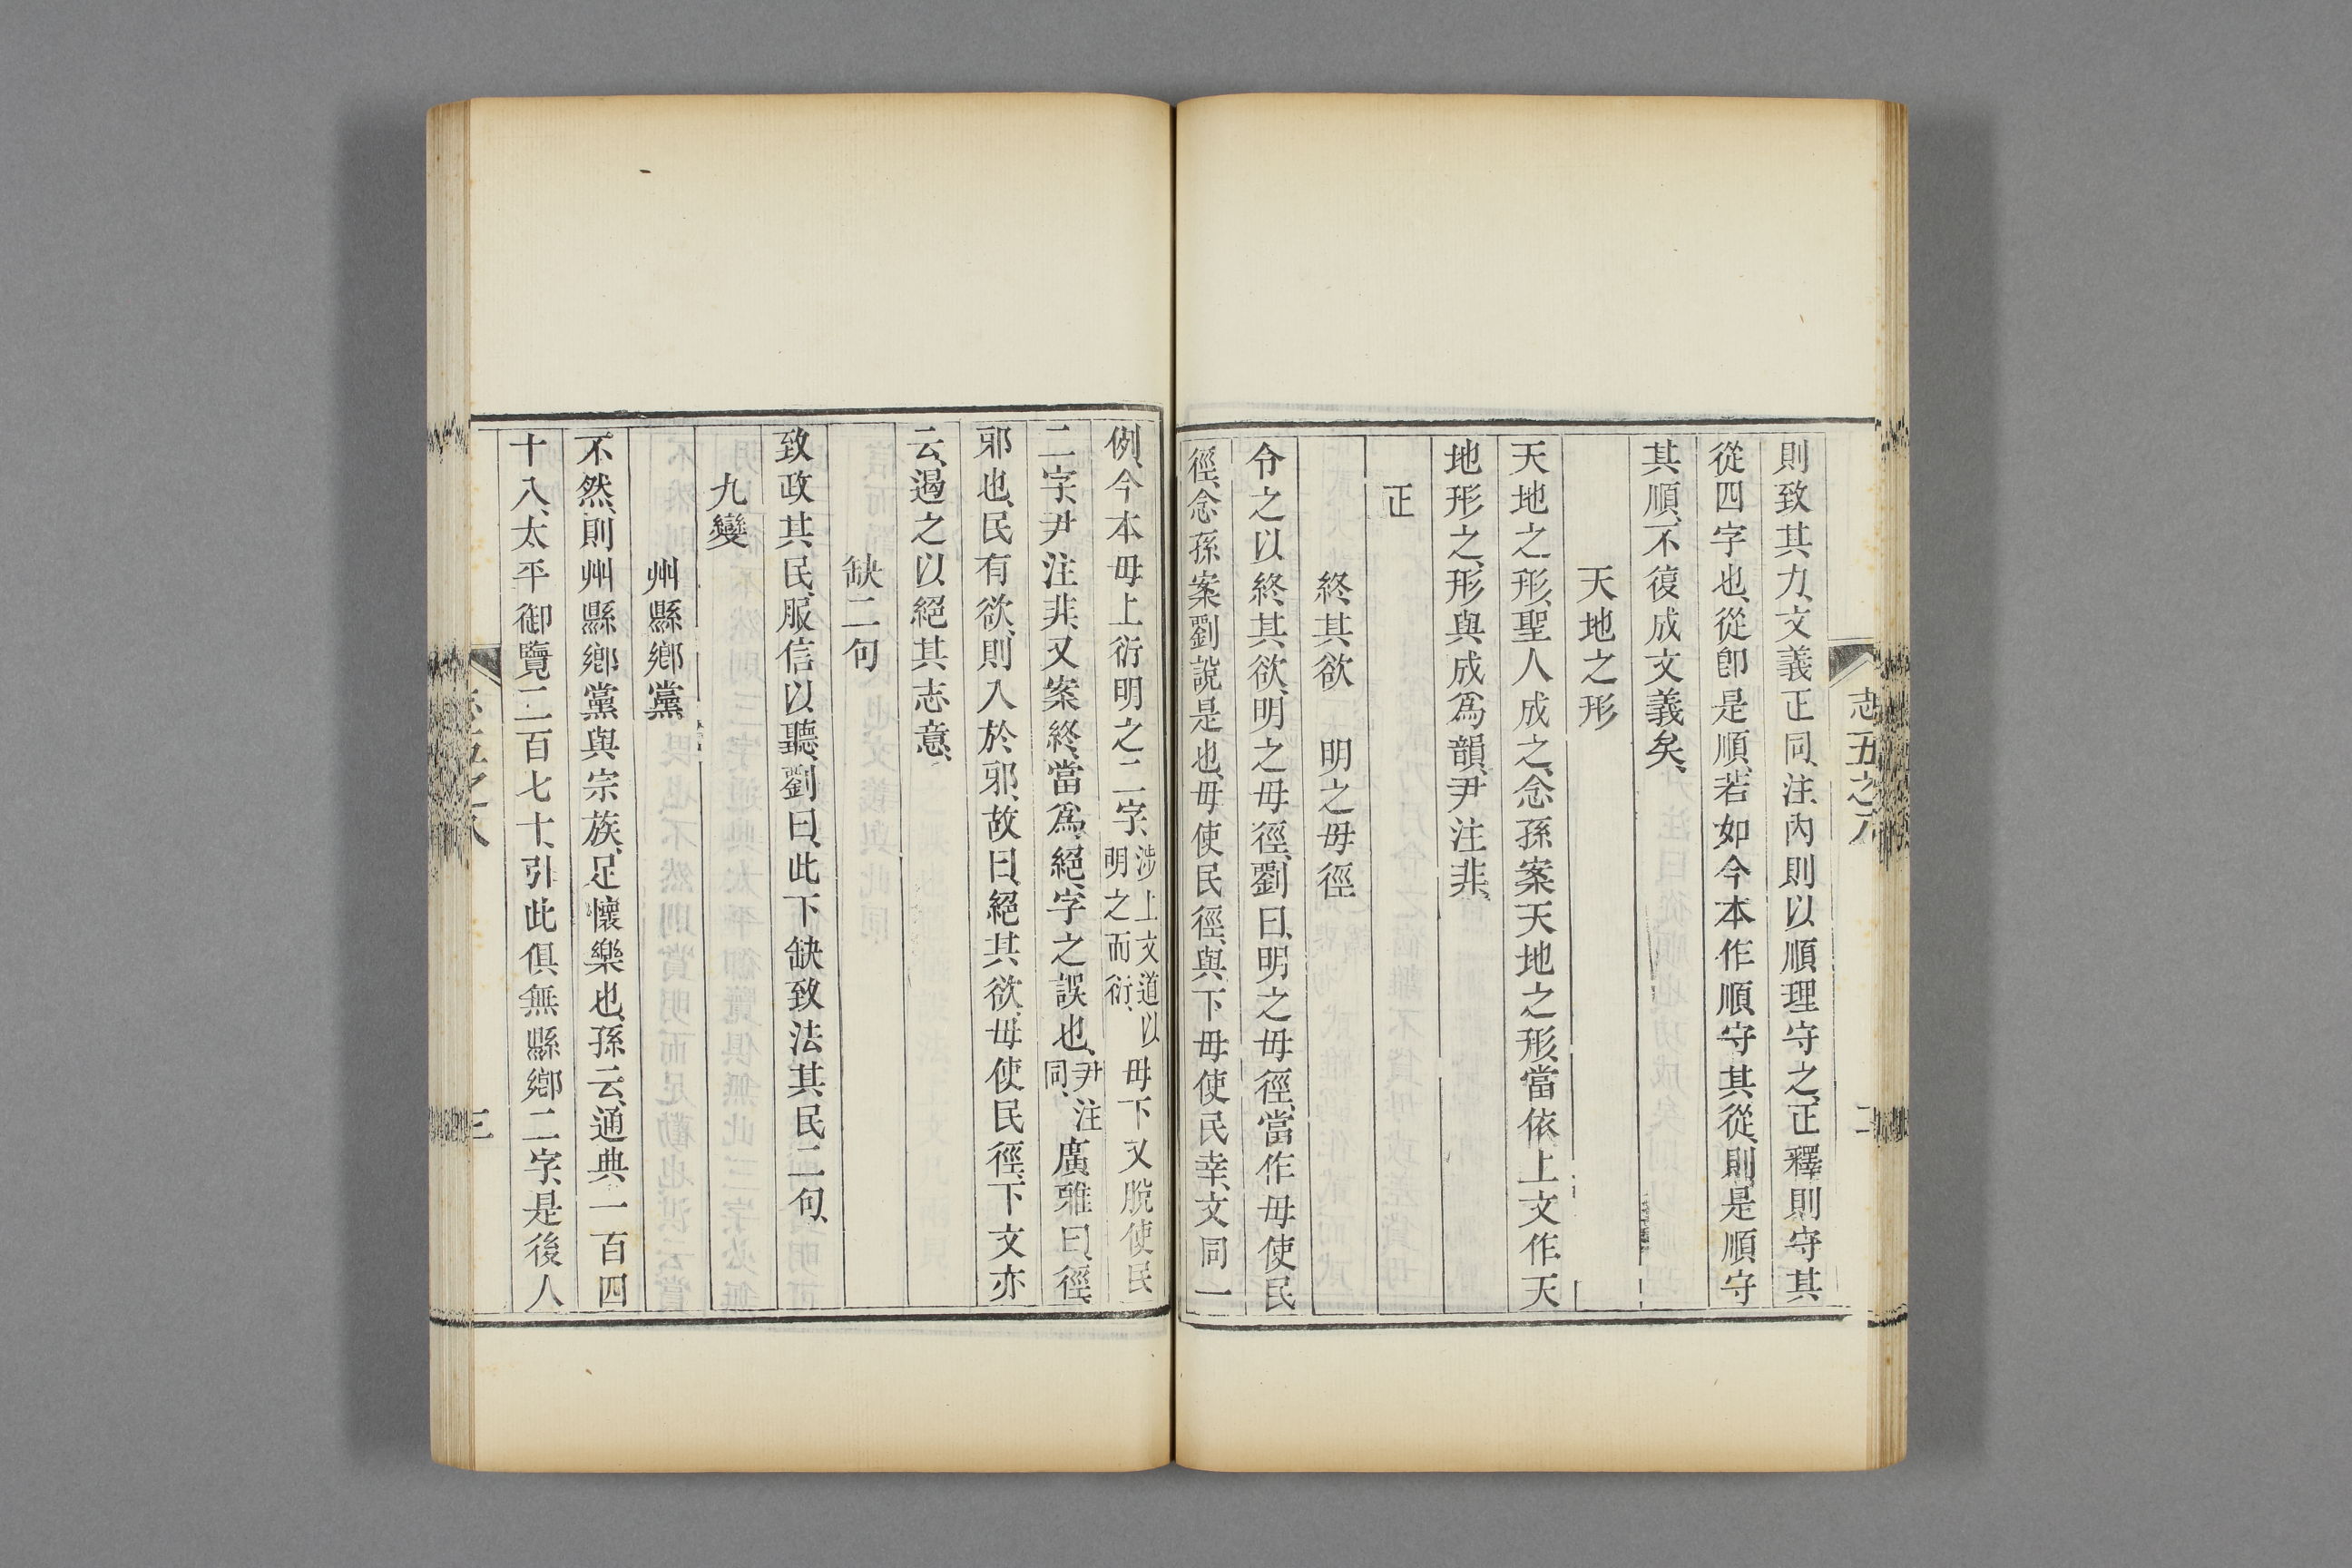 志五之八
二
則致其力、文義正同、注內則以順理守之、正釋則守其
從四字也、從卽是順、若如今本作順守其從、則是順守
其順、不復成文義矣、
天地之形
天地之形、聖人成之、念孫案天地之形、當依上文作天
地形之、形與成爲韻、尹注非、
正
終其欲　明之毋徑
令之以終其欲、明之毋徑、劉曰、明之毋徑、當作毋使民
徑、念孫案劉說是也、毋使民徑、與下毋使民幸、文同一
例、今本毋上衍明之二字、涉上文道以明之而衍、毋下又脫使民
二字、尹注非、又案終、當爲絕、字之誤也、尹注同、廣雅曰、徑、
邪也、民有欲、則入於邪、故曰、絕其欲、毋使民徑、下文亦
云、遏之以絕其志意、
缺二句
致政其民、服信以聽、劉曰、此下缺致法其民二句、
九變
州縣鄉黨
不然、則州縣鄉黨與宗族、足懷樂也、孫云、通典一百四
十八、太平御覽二百七十、引此俱無縣鄉二字、是後人
志五之八
三